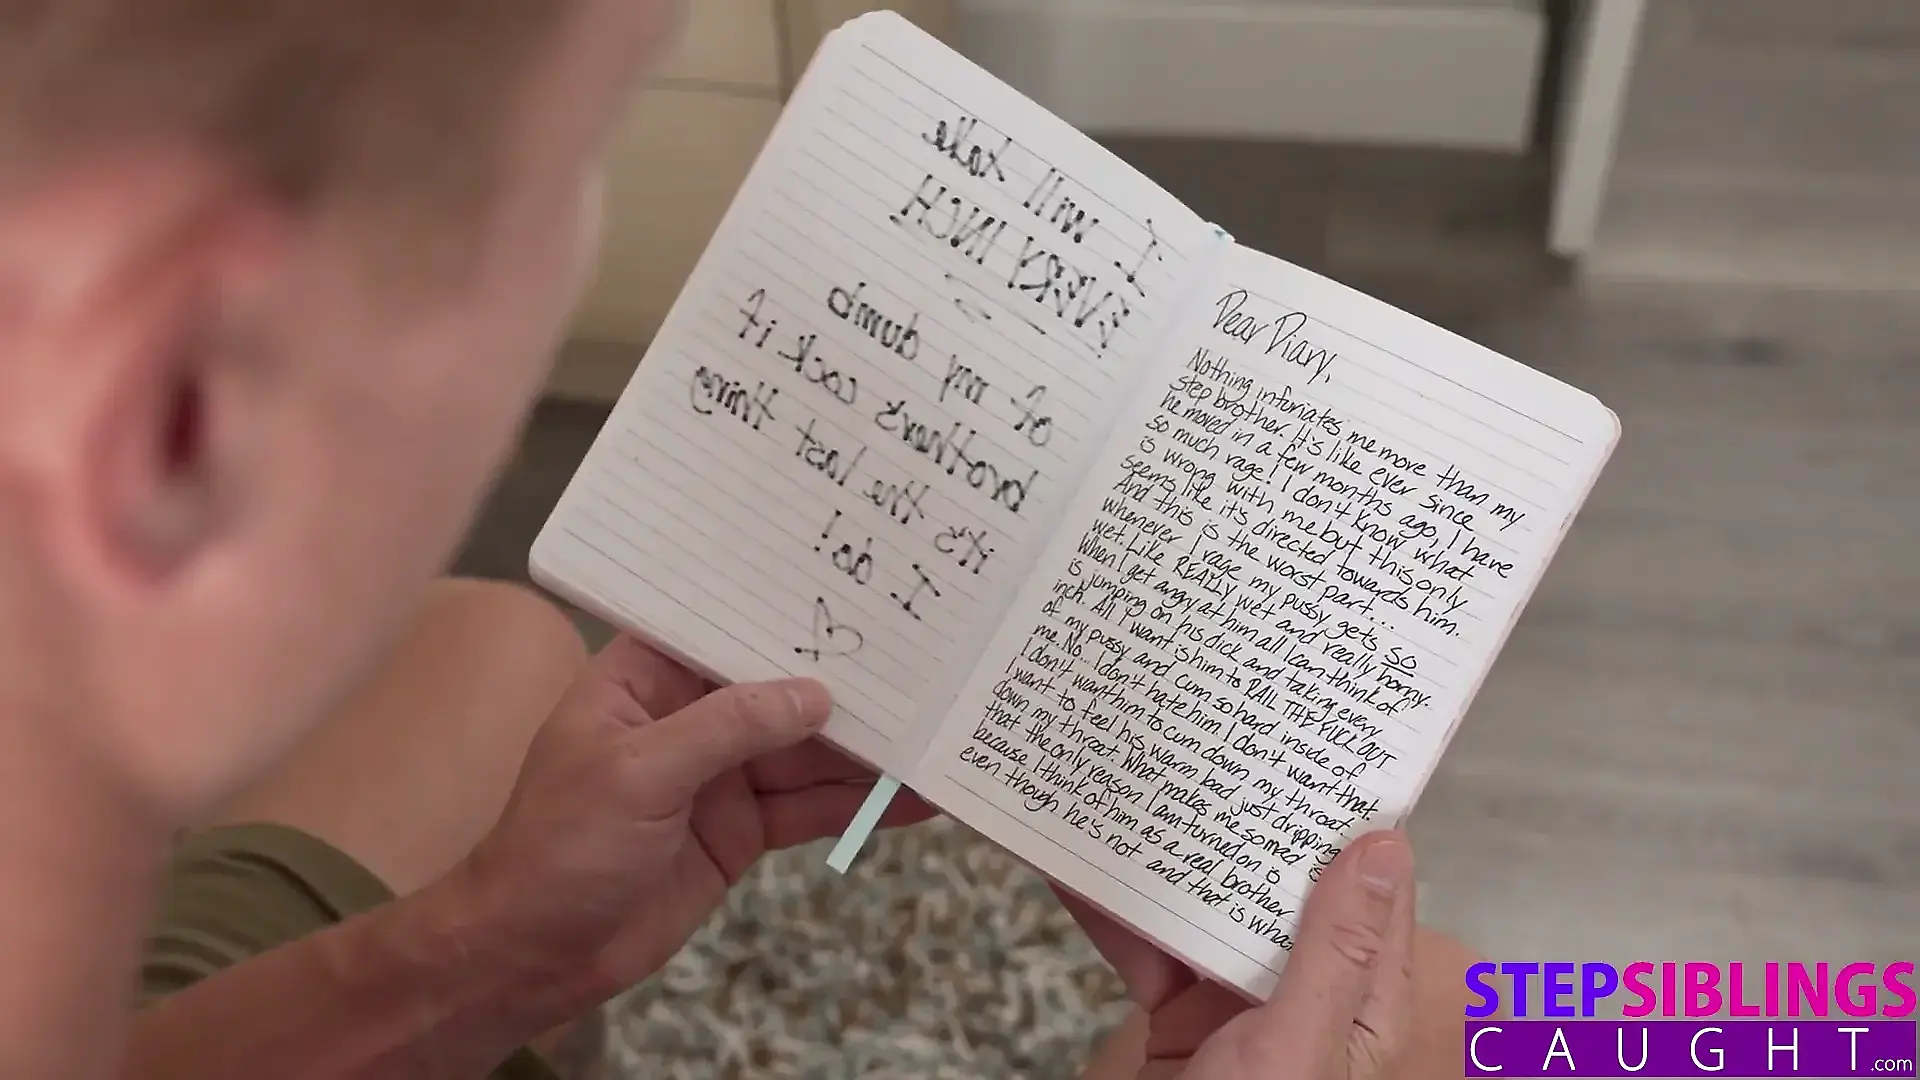 I will take
EVERY INCH!
of my dumb
brother's cock if
it's the last thing
I do!
Dear Diary,
Nothing infuriates me more than my
step brother. It's like ever since
he moved in a few months ago, I have
so much rage! I don't know what
is wrong with me but this only
seems like it's directed towards him.
And this is the worst part...
whenever I rage my pussy gets so
wet. Like REALLY wet and really horny.
When I get angry at him all I can think of
is jumping on his dick and taking every
inch. All I want is him to RAIL THE FUCK OUT
of my pussy and cum so hard inside of
me. No... I don't hate him. I don't want that.
I don't want him to cum down my throat.
I want to feel his warm load just dripping
down my throat. What makes me so mad is
that the only reason I am turned on is
because I think of him as a real brother
even though he's not and that is what
STEPSIBLINGS
CAUGHT.com